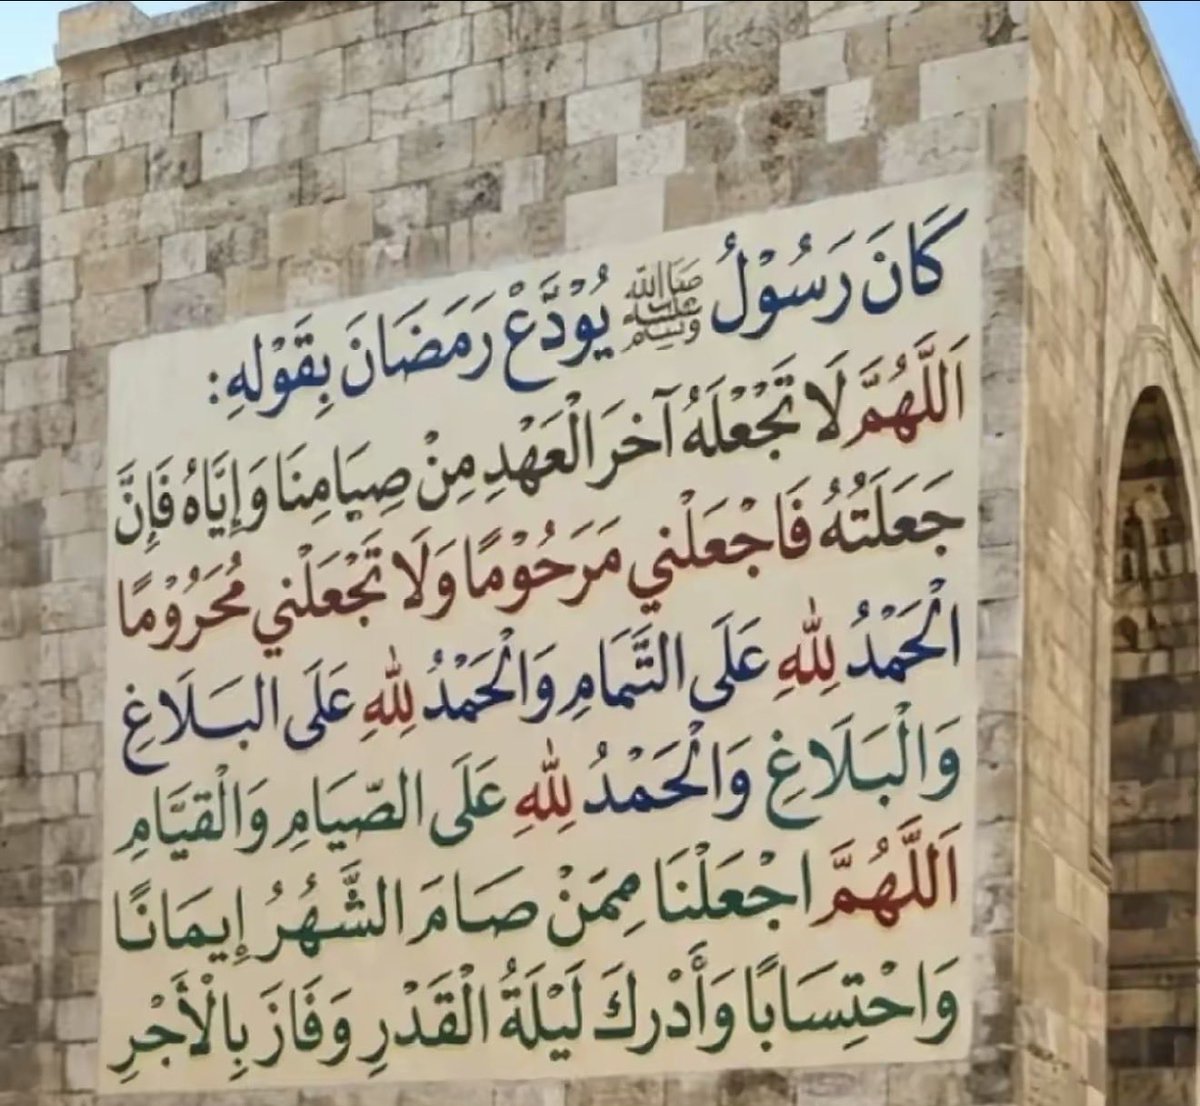 كَانَ رَسُوْلُ ﷺ يُوْدَّعْ رَمَضَانَ بِقَوْلِهِ:
اَللَّهُمَّ لَا تَجْعَلْهُ آخَرَ الْعَهْدِ مِنْ صِيَامِنَا وَإِيَّاهُ فَإِنَّ
جَعَلَتْهُ فَاجْعَلْني مَرَحُوْمًا وَلَا تَجْعَلْني مُحَرُوْمًا
الْحَمْدُ لِلّٰهِ عَلَى التَّمَامِ وَالْحَمْدُ لِلّٰهِ عَلَى البَلَاغِ
وَالْبَلَاغِ وَالْحَمْدُ لِلّٰهِ عَلَى الصّيَامِ وَالْقيَّامِ
اَللَّهُمَّ اجْعَلْنَا مِمَنْ صَامَ الشَّهْرُ إِيمَانًا
وَاحْتِسَابًا وَأَدْركَ لَيْلَةُ الْقَدْرِ وَفَازَ بِالْأَجْرِ